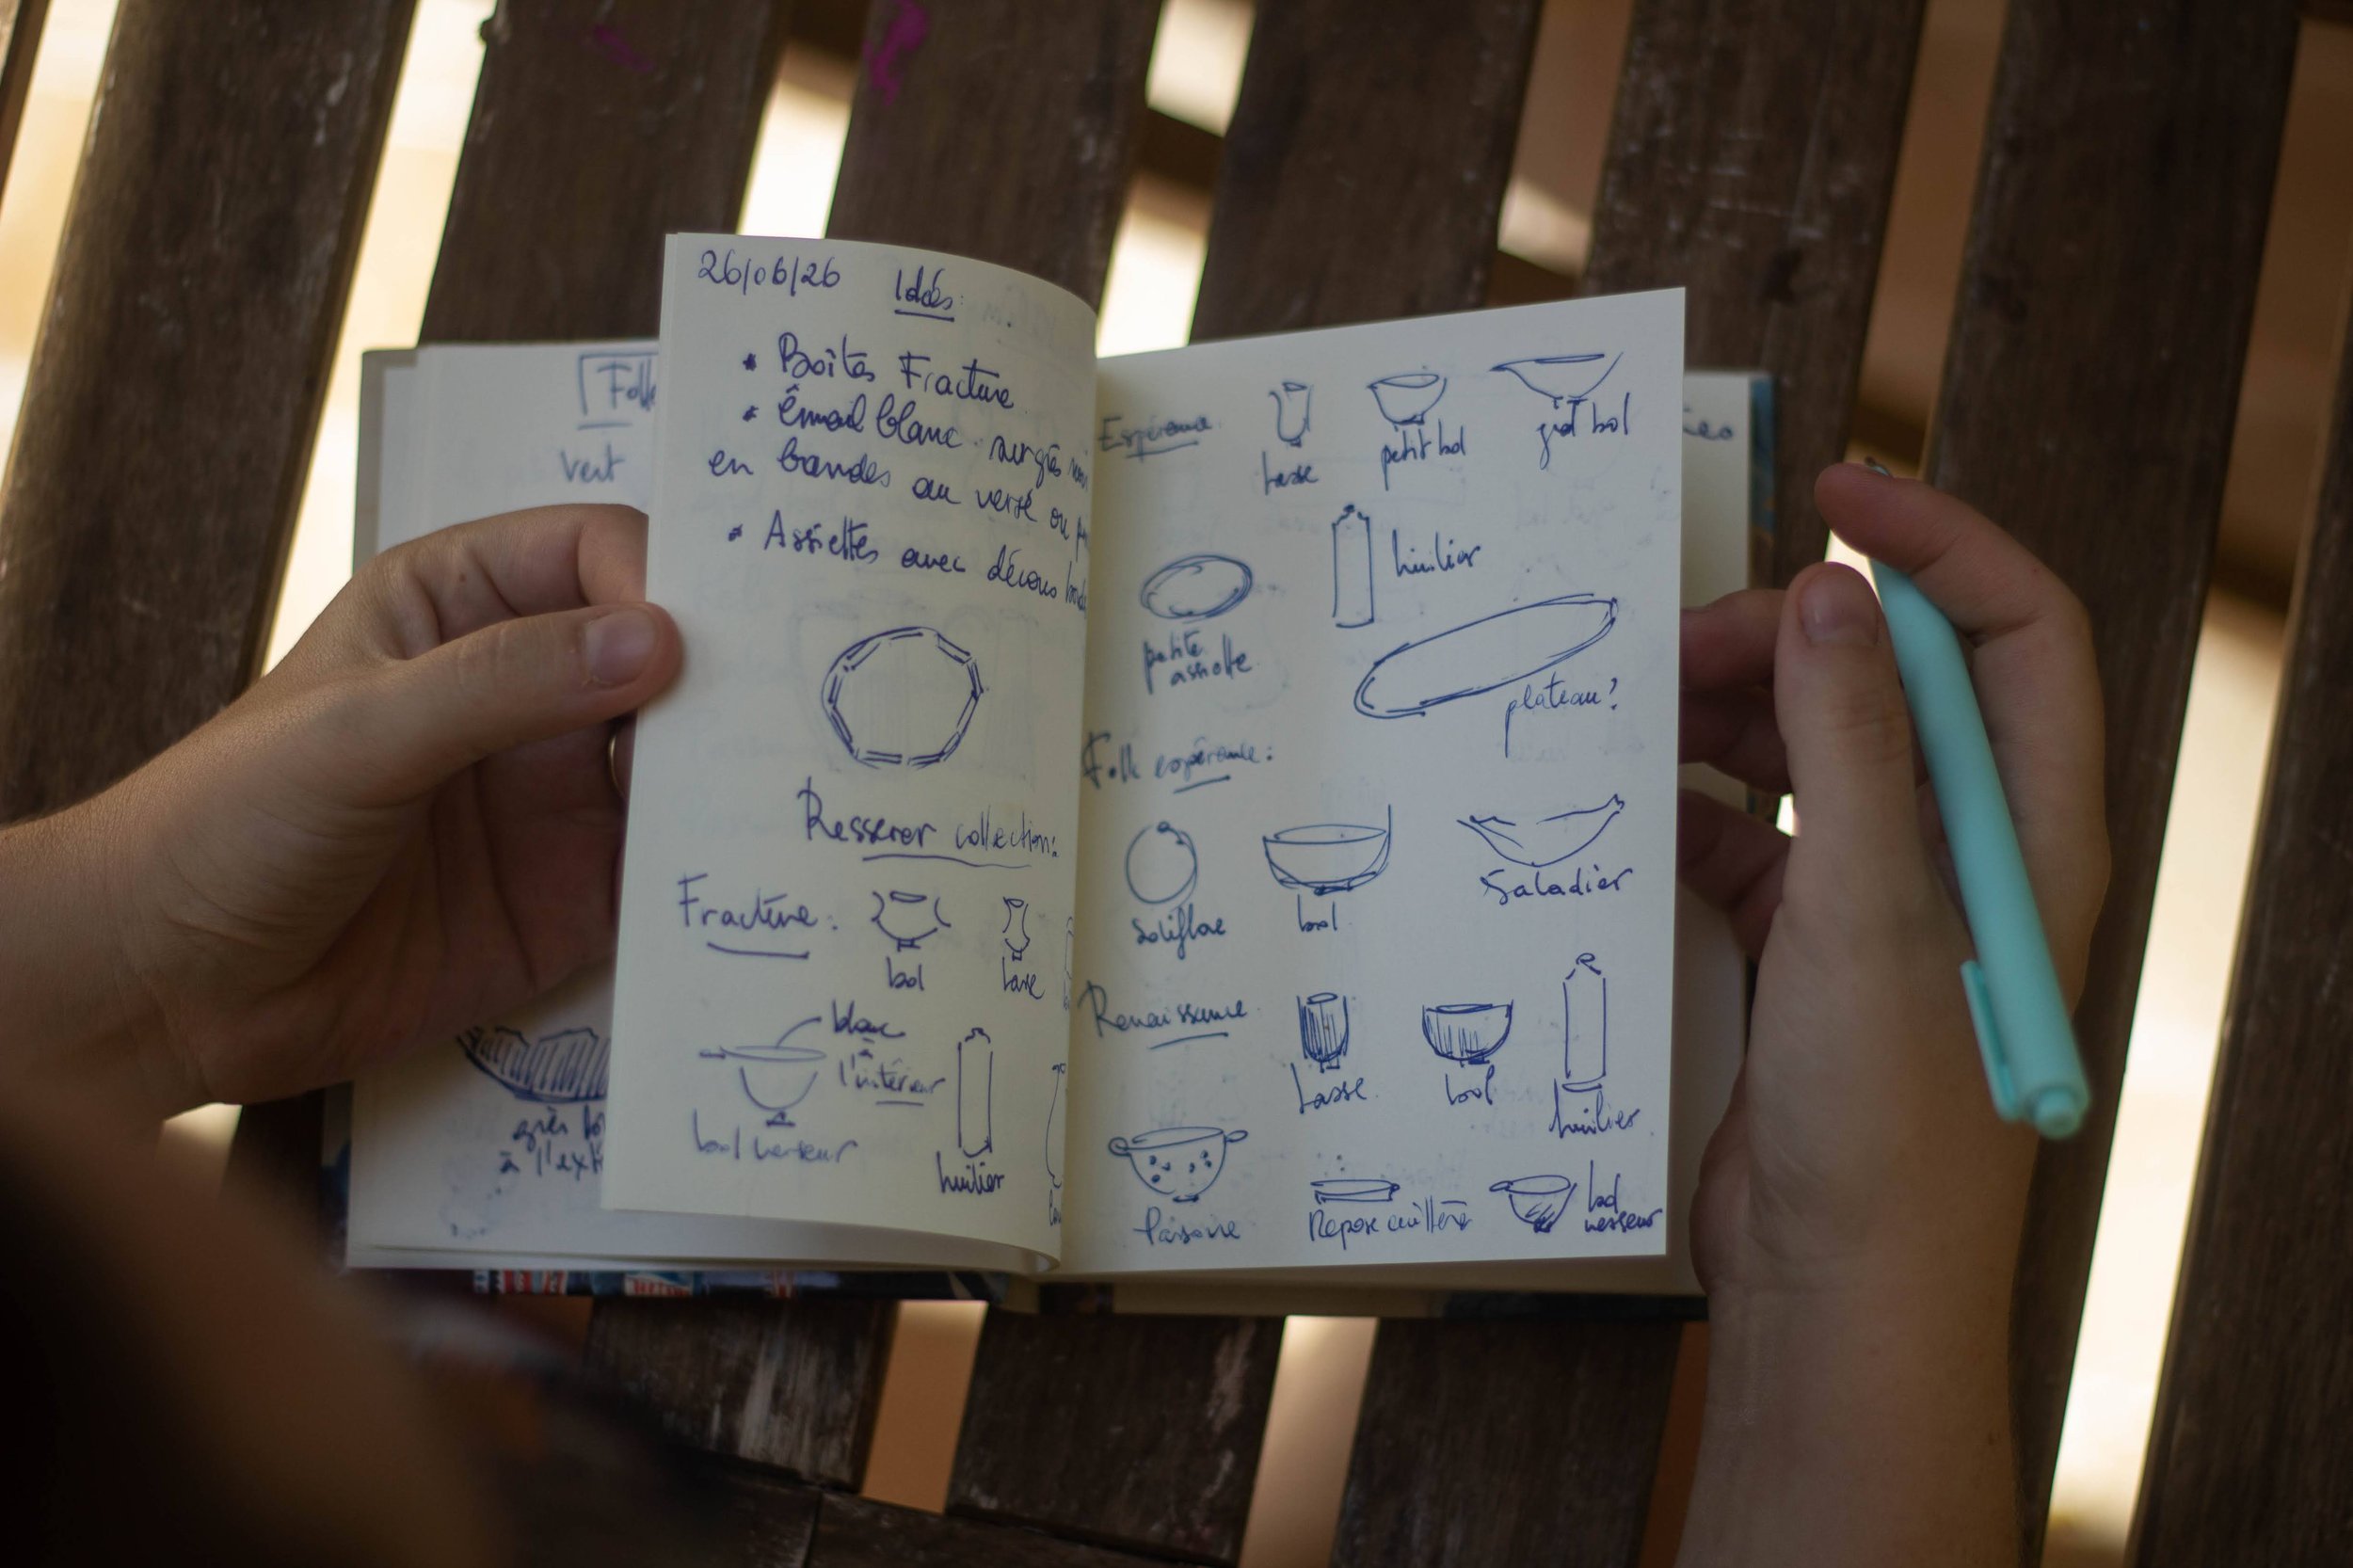 Folk
vert
grès
à l'ext
26/06/26 Idées:
* Boîtes Fracture
* Émail blanc sur grès noir
en bandes au versé ou
* Assiettes avec décors
Resserer collection:
Fracture:
bol
tasse
blanc
à
l'intérieur
bol verseur
huilier
Espérance
tasse
petit bol
gd bol
huilier
petite
assiette
plateau?
Folk espérance:
Soliflore
bol
Saladier
Renaissance
tasse
bol
huilier
Passoire
Repose cuillère
bol
verseur